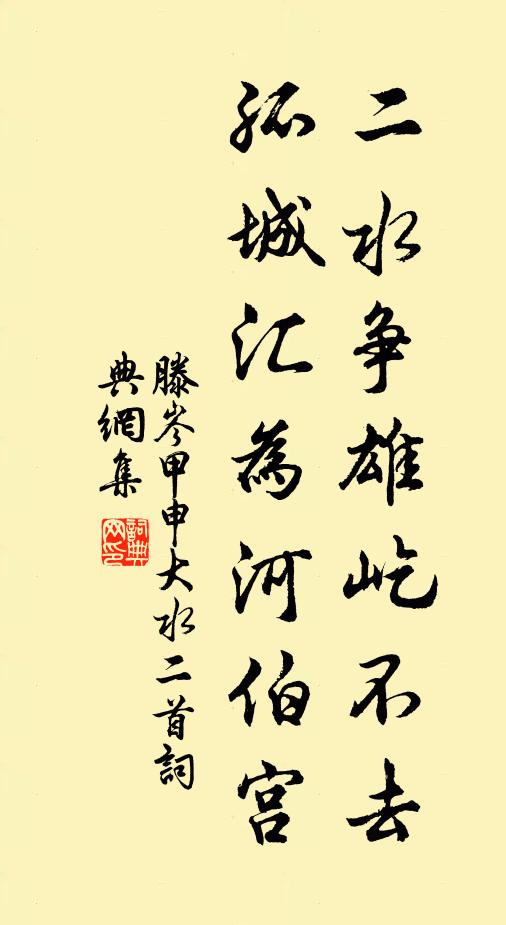 二水争雄屹不去
孤城汇為河伯宫
滕岑甲申大水二首詞
典網集
詞典网印